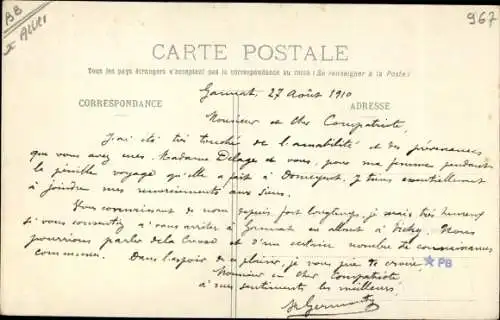 BB
F Allier
967
CARTE POSTALE
Tous les pays étrangers n'acceptent pas la correspondance au recto (Se renseigner à la Poste)
CORRESPONDANCE
ADRESSE
Gannat, 27 Août 1910
Monsieur et cher Compatriote,
J'ai été très touché de l'amabilité et des prévenances
que vous avez eues Madame Delage et vous, pour ma femme pendant
le pénible voyage qu'elle a fait à Domeyrot. Je tiens essentiellement
à joindre mes remerciements aux siens.
Vous connaissant de nom depuis fort longtemps, je serais très heureux
si vous consentiez à vous arrêter à Gannat en allant à Vichy. Nous
pourrions parler de la Creuse et d'un certain nombre de connaissances
communes. Dans l'espoir de ce plaisir, je vous prie de croire
PB
Monsieur et cher Compatriote
à mes sentiments les meilleurs